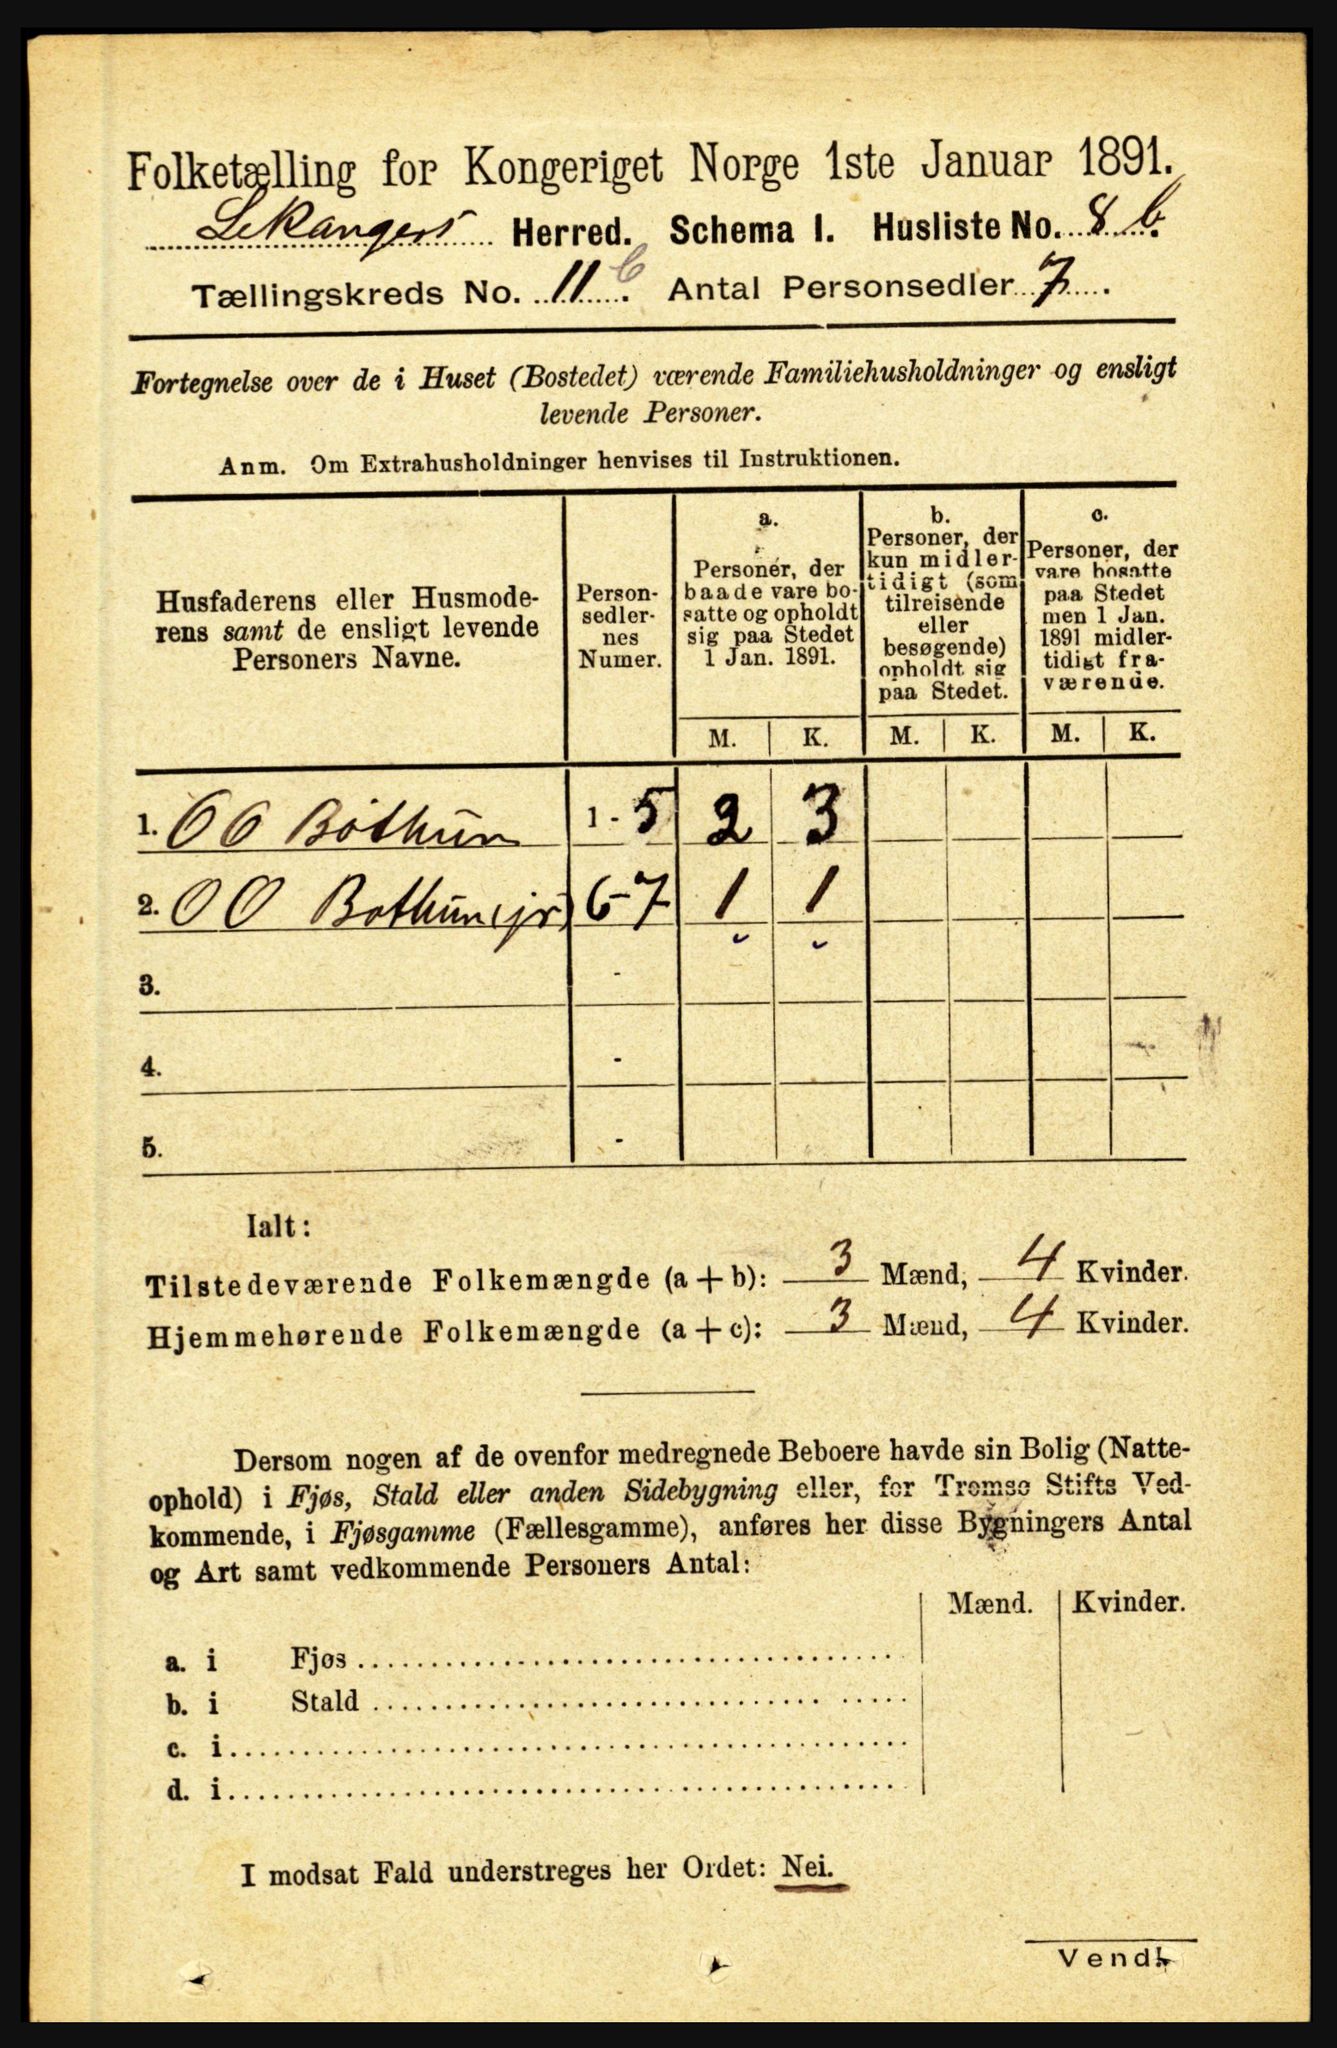 Folketælling for Kongeriget Norge 1ste Januar 1891.
Leikangers Herred. Schema I. Husliste No. 8 b.
Tællingskreds No. 11 b. Antal Personsedler 7.
Fortegnelse over de i Huset (Bostedet) værende Familiehusholdninger og ensligt
levende Personer.
Anm. Om Extrahusholdninger henvises til Instruktionen.
Husfaderens eller Husmode-
rens samt de ensligt levende
Personers Navne.
Person-
sedler-
nes
Numer.
a.
Personer, der
baade vare bo-
satte og opholdt
sig paa Stedet
1 Jan. 1891.
b.
Personer, der
kun midler-
tidigt (som
tilreisende
eller
besøgende)
opholdt sig
paa Stedet.
c.
Personer, der
vare bosatte
paa Stedet
men 1 Jan.
1891 midler-
tidigt fra-
værende.
M. K. M. K. M. K.
1. O O Bøthun 1 - 5 2 3
2. O O Bøthun (jr) 6-7 1 1
3. -
4. -
5. -
Ialt:
Tilstedeværende Folkemængde (a + b): 3 Mænd, 4 Kvinder.
Hjemmehørende Folkemængde (a + c): 3 Mænd, 4 Kvinder.
Dersom nogen af de ovenfor medregnede Beboere havde sin Bolig (Natte-
ophold) i Fjøs, Stald eller anden Sidebygning eller, for Tromsø Stifts Ved-
kommende, i Fjøsgamme (Fællesgamme), anføres her disse Bygningers Antal
og Art samt vedkommende Personers Antal:
Mænd. Kvinder.
a. i Fjøs
b. i Stald
c. i
d. i
I modsat Fald understreges her Ordet: Nei.
Vendt